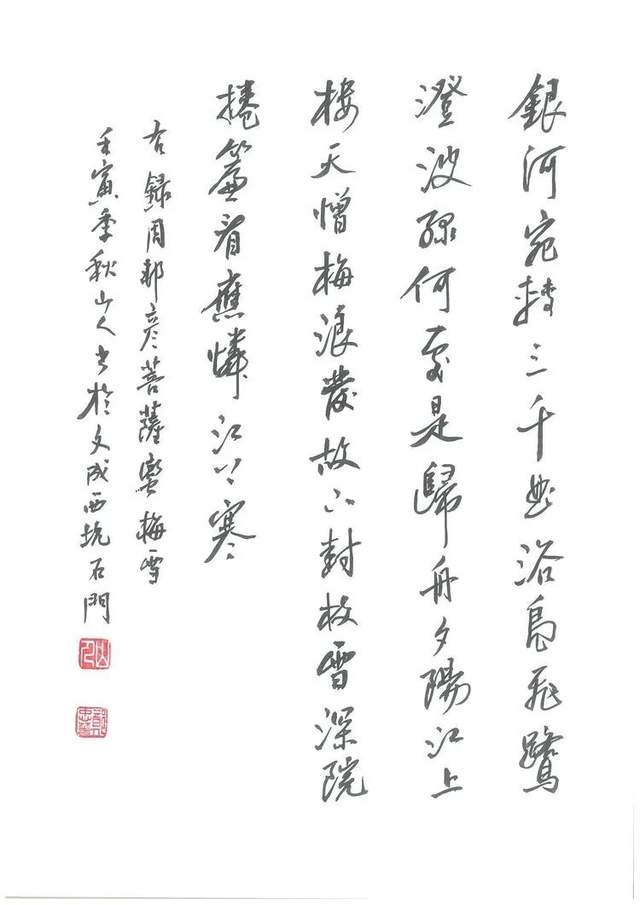 銀河宛轉三千曲浴鳧飛鷺
澄波綠何處是歸舟夕陽江上
樓天憎梅浪發故下封枝雪深院
捲簾看應憐江上寒
右錄周邦彥菩薩蠻梅雪
壬寅季秋山人書於文成西坑石門
山人